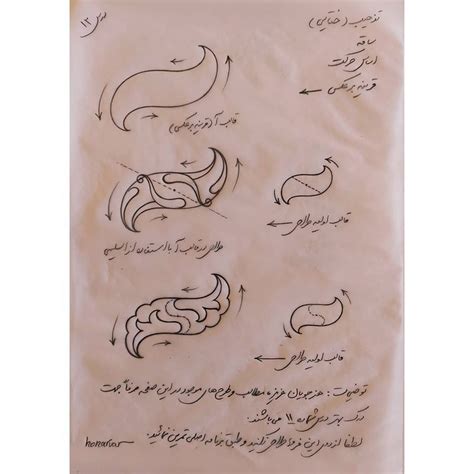 درس ۱۲
تذهیب (ختایی)
ساقه
اساس حرکت
قرینه برعکس
قالب آ (قرینه برعکس)
قالب اولیه طراحی
طراحی در قالب آ با استفاده از اسلیمی
قالب اولیه طراحی
توضیحات: هنرجویان عزیز، مطالب و طرح‌های موجود در این صفحه صرفاً جهت
درک بهتر درس شماره ۱۱ می باشند.
لطفا از روی این فرم‌ها طراحی نکنید و طبق برنامه اصلی تمرین نمائید.